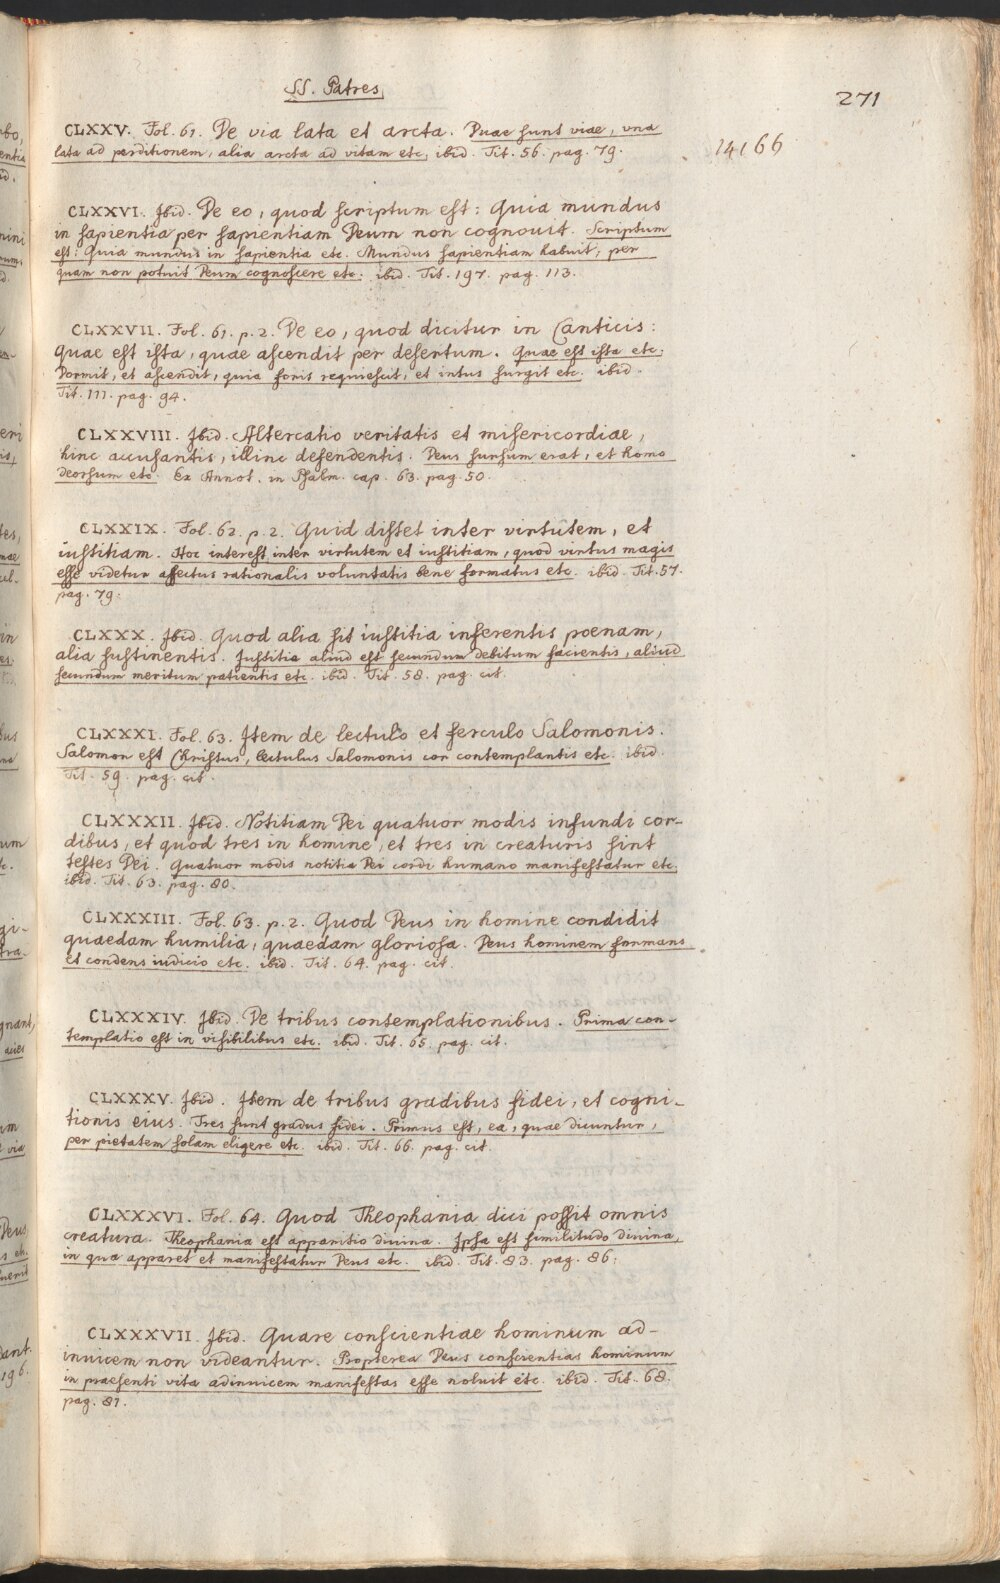 SS. Patres
271
CLXXV. Fol. 61. De via lata et arcta. Duae sunt viae, una
lata ad perditionem, alia arcta ad vitam etc. ibid. Tit. 56. pag. 79.
14166
CLXXVI. Ibid. De eo, quod scriptum est: Quia mundus
in sapientia per sapientiam Deum non cognouit. Scriptum
est: Quia mundus in sapientia etc. Mundus sapientiam habuit, per
quam non potuit Deum cognoscere etc. ibid. Tit. 197. pag. 113.
CLXXVII. Fol. 61. p. 2. De eo, quod dicitur in Canticis:
Quae est ista, quae ascendit per desertum. Quae est ista etc.
Dormit, et ascendit, quia foris requiescit, et intus surgit etc. ibid.
Tit. 111. pag. 94.
CLXXVIII. Ibid. Altercatio veritatis et misericordiae,
hinc accusantis, illinc defendentis. Deus sursum erat, et homo
deorsum etc. Ex Annot. in Psalm. cap. 63. pag. 50.
CLXXIX. Fol. 62. p. 2. Quid distet inter virtutem, et
iustitiam. Hoc interest inter virtutem et iustitiam, quod virtus magis
esse videtur affectus rationalis voluntatis bene formatus etc. ibid. Tit. 57.
pag. 79.
CLXXX. Ibid. Quod alia sit iustitia inferentis poenam,
alia sustinentis. Iustitia aliud est secundum debitum facientis, aliud
secundum meritum patientis etc. ibid. Tit. 58. pag. cit.
CLXXXI. Fol. 63. Item de lectulo et ferculo Salomonis.
Salomon est Christus, lectulus Salomonis cor contemplantis etc. ibid.
Tit. 59. pag. cit.
CLXXXII. Ibid. Notitiam Dei quatuor modis infundi cor-
dibus, et quod tres in homine, et tres in creaturis sint
testes Dei. Quatuor modis notitia Dei cordi humano manifestatur etc.
ibid. Tit. 63. pag. 80.
CLXXXIII. Fol. 63. p. 2. Quod Deus in homine condidit
quaedam humilia, quaedam gloriosa. Deus hominem formans
et condens iudicio etc. ibid. Tit. 64. pag. cit.
CLXXXIV. Ibid. De tribus contemplationibus. Prima con-
templatio est in visibilibus etc. ibid. Tit. 65. pag. cit.
CLXXXV. Ibid. Item de tribus gradibus fidei, et cogni-
tionis eius. Tres sunt gradus fidei. Primus est, ea, quae dicuntur,
per pietatem solam eligere etc. ibid. Tit. 66. pag. cit.
CLXXXVI. Fol. 64. Quod Theophania dici possit omnis
creatura. Theophania est apparitio divina. Ipsa est similitudo divina,
in qua apparet et manifestatur Deus etc. ibid. Tit. 83. pag. 86.
CLXXXVII. Ibid. Quare conscientiae hominum ad-
inuicem non videantur. Propterea Deus conscientias hominum
in praesenti vita adinuicem manifestas esse noluit etc. ibid. Tit. 68.
pag. 81.